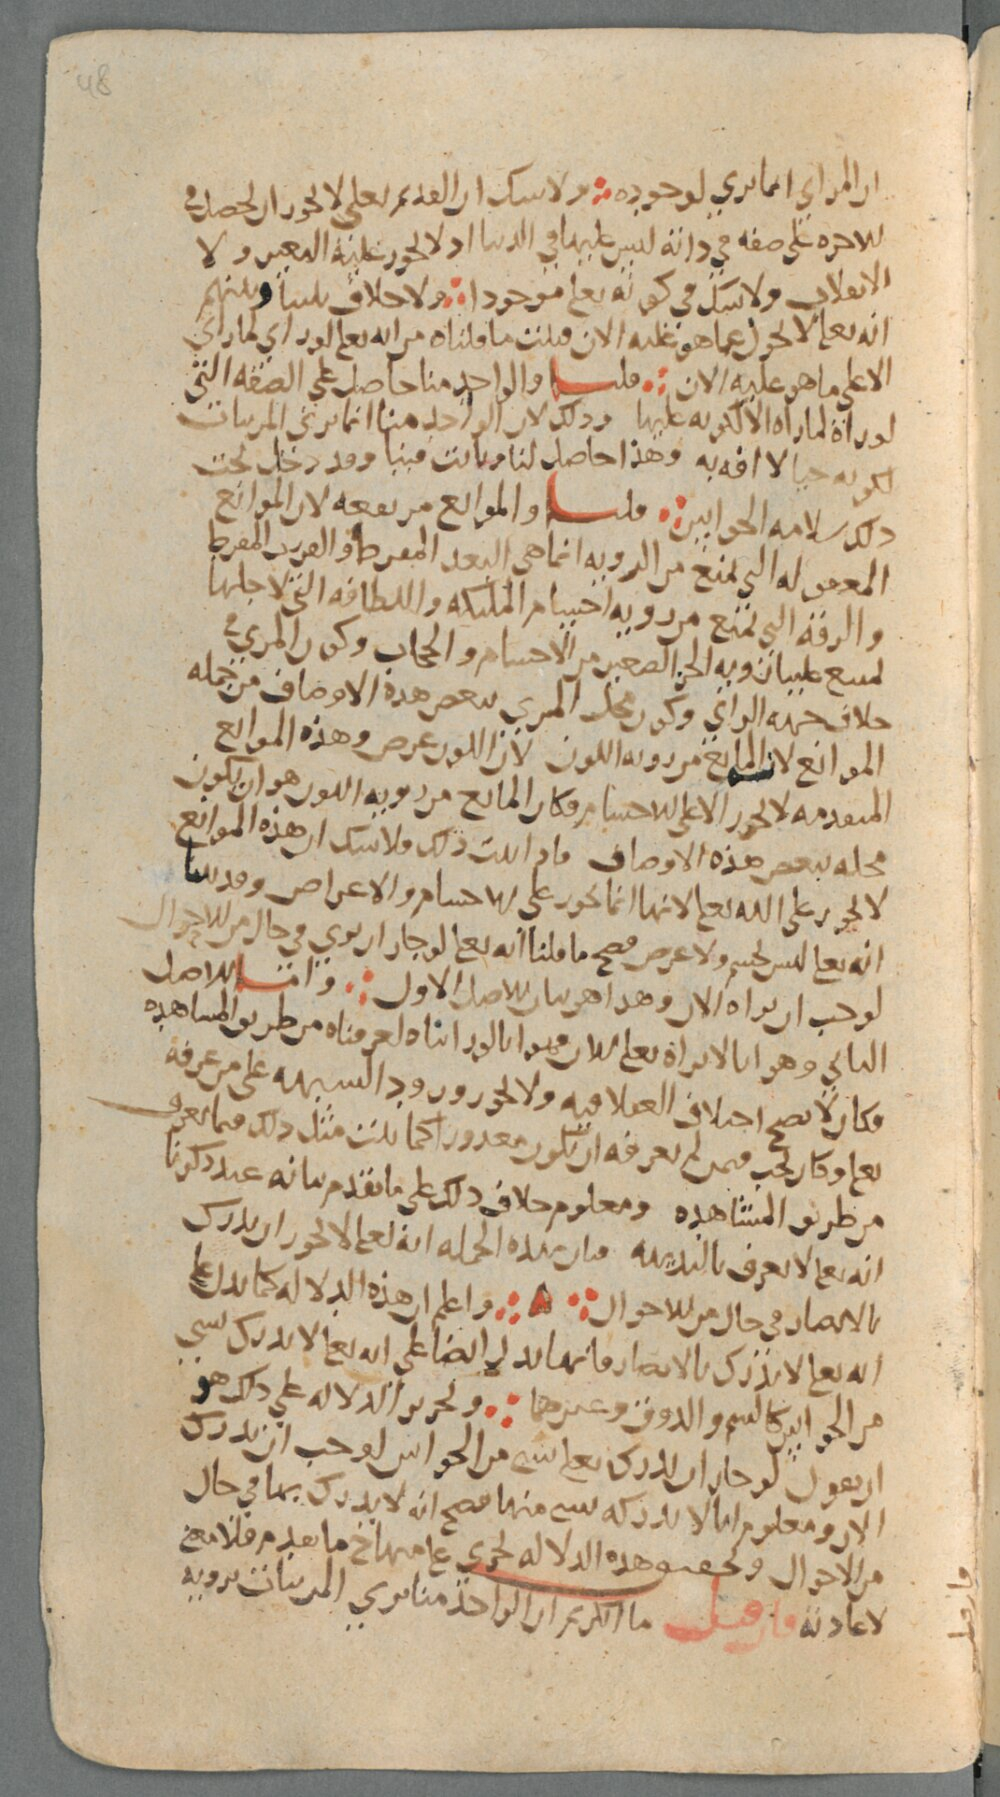 48
ان المرأي انما يري لوجوده ولا شك ان القديم تعلى لا يجوز ان يحصل في
الاخرة على صفه في ذاته ليس عليها في الدنيا اذ لا يجوز عليه التغيير ولا
الانقلاب ولا شك في كونه تعلى موجودا ولا خلاف بيننا وبينهم
انه تعلى لا يحول عما هو عليه الان فثبت ما قلناه من انه تعلى لو رأي لما رأي
الا على ما هو عليه الان قلنا والواحد منا حاصل على الصفه التي
لو رآه لما رآه الا لكونه عليها وذلك لان الواحد منا انما يرى المرئيات
لكونه حيا لا افه به وهذا حاصل لنا وثابت فينا وقد دخل تحت
ذلك سلامه الحواس قلنا والموانع مرتفعه لان الموانع
المعقوله التي تمنع من الرويه انما هي البعد المفرط والقرب المفرط
والرقه التي تمنع من رويه اجسام الملئكه واللطافه التي لاجلها
يمتنع علينا رويه الجزء الصغير من الاجسام والحجاب وكون المرئي في
خلاف جهه الرأي وكون محل المري ببعض هذه الاوصاف من جمله
الموانع لان المانع من رويه اللون لان اللون عرض وهذه الموانع
المتقدمه لا تجوز الا على الاجسام فكان المانع من رويه اللون هو ان يكون
محله ببعض هذه الاوصاف فاذا ثبت ذلك فلا شك ان هذه الموانع
لا تجوز على الله تعلى لانها انما تجوز على الاجسام والاعراض وقد بينا
انه تعلى ليس بجسم ولا عرض فصح ما قلنا انه تعلى لو جاز ان يري في حال من الاحوال
لوجب ان نراه الان وهذا هو بيان الاصل الاول واما الاصل
الثاني وهو انا لا نراه تعلى الان فهو انا لو رأيناه لعرفناه من طريق المشاهده
فكان لا يصح اختلاف العقلا فيه ولا يجوز ورود الشبهه على من عرفه
تعلى وكان يجب فيمن لم يعرفه ان يكون معذورا كما يثبت مثل ذلك فيما يعرف
من طريق المشاهده ومعلوم خلاف ذلك على ما تقدم بيانه عند ذكرنا
انه تعلى لا يعرف بالبديهه فبان بهذه الجمله انه تعلى لا يجوز ان يدرك
بالابصار في حال من الاحوال ه واعلم ان هذه الدلاله كما تدل على
انه تعلى لا يدرك بالابصار فانها تدل ايضا على انه تعلى لا يدرك بشي
من الحواس كالشم والذوق وغيرهما وتحرير الدلاله على ذلك هو
ان يقول لو جاز ان يدرك تعلى بشي من الحواس لوجب ان يدرك
الان ومعلوم انا لا ندركه بشي منها فصح انه لا يدرك بها في حال
من الاحوال وتحقيق هذه الدلاله يجري على منهاج ما تقدم فلا معنى
لاعادته فان قيل ما انكرتم ان الواحد منا يري المرئيات برويه
فان قيل